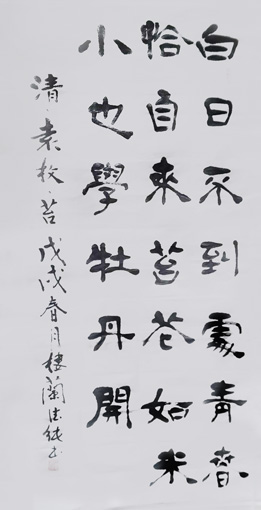 白日不到處青春
恰自來苔花如米
小也學牡丹開
清·袁枚·苔 戊戌春月樓蘭純书